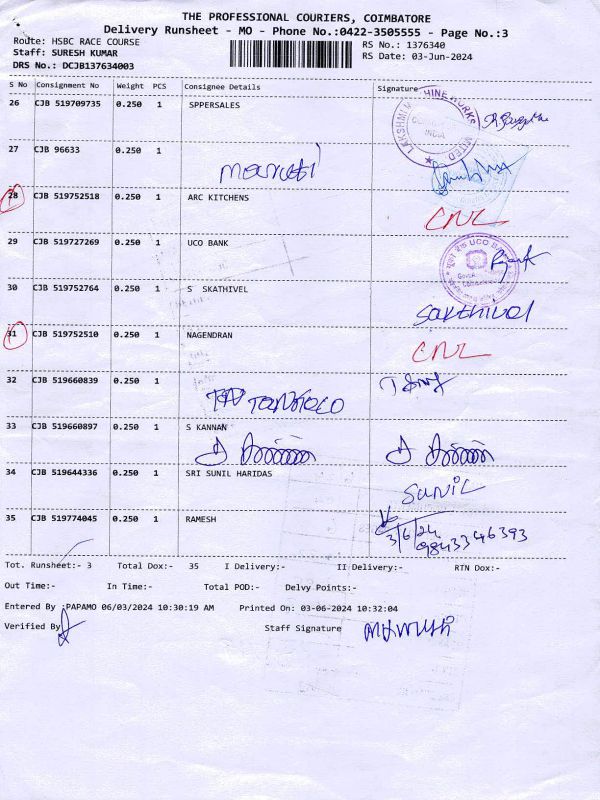 THE PROFESSIONAL COURIERS, COIMBATORE
Delivery Runsheet - MO - Phone No.:0422-3505555 - Page No.:3
Route: HSBC RACE COURSE RS No.: 1376340
Staff: SURESH KUMAR RS Date: 03-Jun-2024
DRS No.: DCJB137634003
S No Consignment No Weight PCS Consignee Details Signature
26 CJB 519709735 0.250 1 SPPERSALES
LAKSHMI MACHINE WORKS LIMITED
INDIA
27 CJB 96633 0.250 1
Maruti
28 CJB 519752518 0.250 1 ARC KITCHENS CNL
29 CJB 519727269 0.250 1 UCO BANK UCO BANK
30 CJB 519752764 0.250 1 S SKATHIVEL Sakthivel
31 CJB 519752510 0.250 1 NAGENDRAN CNL
32 CJB 519660839 0.250 1
33 CJB 519660897 0.250 1 S KANNAN
34 CJB 519644336 0.250 1 SRI SUNIL HARIDAS SUNIL
35 CJB 519774045 0.250 1 RAMESH 3/6/24
9843346393
Tot. Runsheet:- 3 Total Dox:- 35 I Delivery:- II Delivery:- RTN Dox:-
Out Time:- In Time:- Total POD:- Delvy Points:-
Entered By :PAPAMO 06/03/2024 10:30:19 AM Printed On: 03-06-2024 10:32:04
Verified By Staff Signature